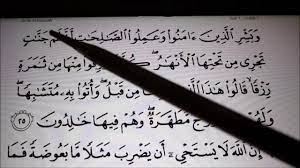 وَبَشِّرِ ٱلَّذِينَ ءَامَنُوا۟ وَعَمِلُوا۟ ٱلصَّٰلِحَٰتِ أَنَّ لَهُمْ جَنَّٰتٍ
تَجْرِى مِن تَحْتِهَا ٱلْأَنْهَٰرُ مِنْهَا مِن ثَمَرَةٍ
رِّزْقًا قَالُوا۟ هَٰذَا ٱلَّذِى مِن قَبْلُ وَأُتُوا۟ بِهِۦ مُتَشَٰبِهًا
وَلَهُمْ فِيهَآ أَزْوَٰجٌ مُّطَهَّرَةٌ وَهُمْ فِيهَا خَٰلِدُونَ ٢٥
إِنَّ ٱللَّهَ لَا يَسْتَحْىِۦٓ أَن يَضْرِبَ مَثَلًا مَّا بَعُوضَةً فَمَا